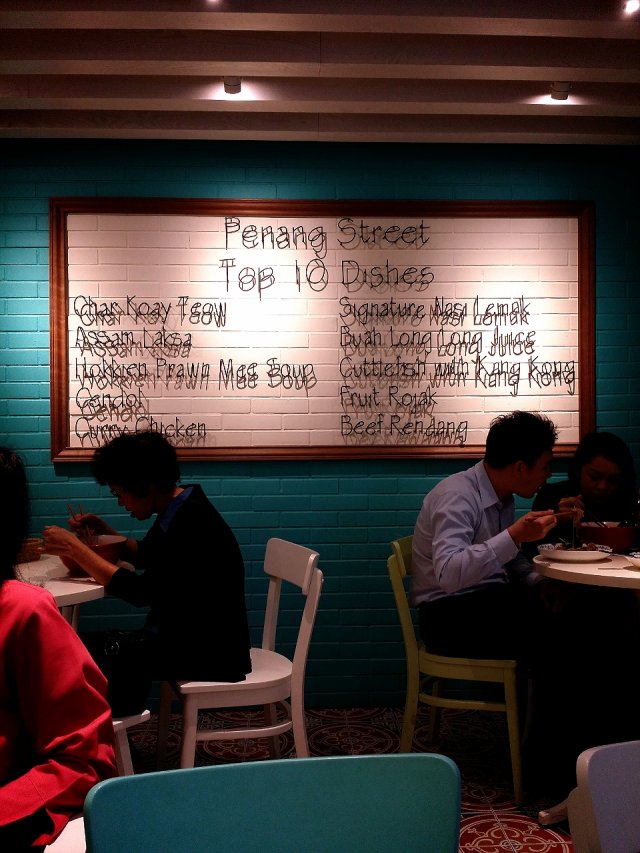 Penang Street
Top 10 Dishes
Char Koay Teow
Assam Laksa
Hokkien Prawn Mee Soup
Cendol
Curry Chicken
Signature Nasi Lemak
Buah Long Long Juice
Cuttlefish with Kang Kong
Fruit Rojak
Beef Rendang